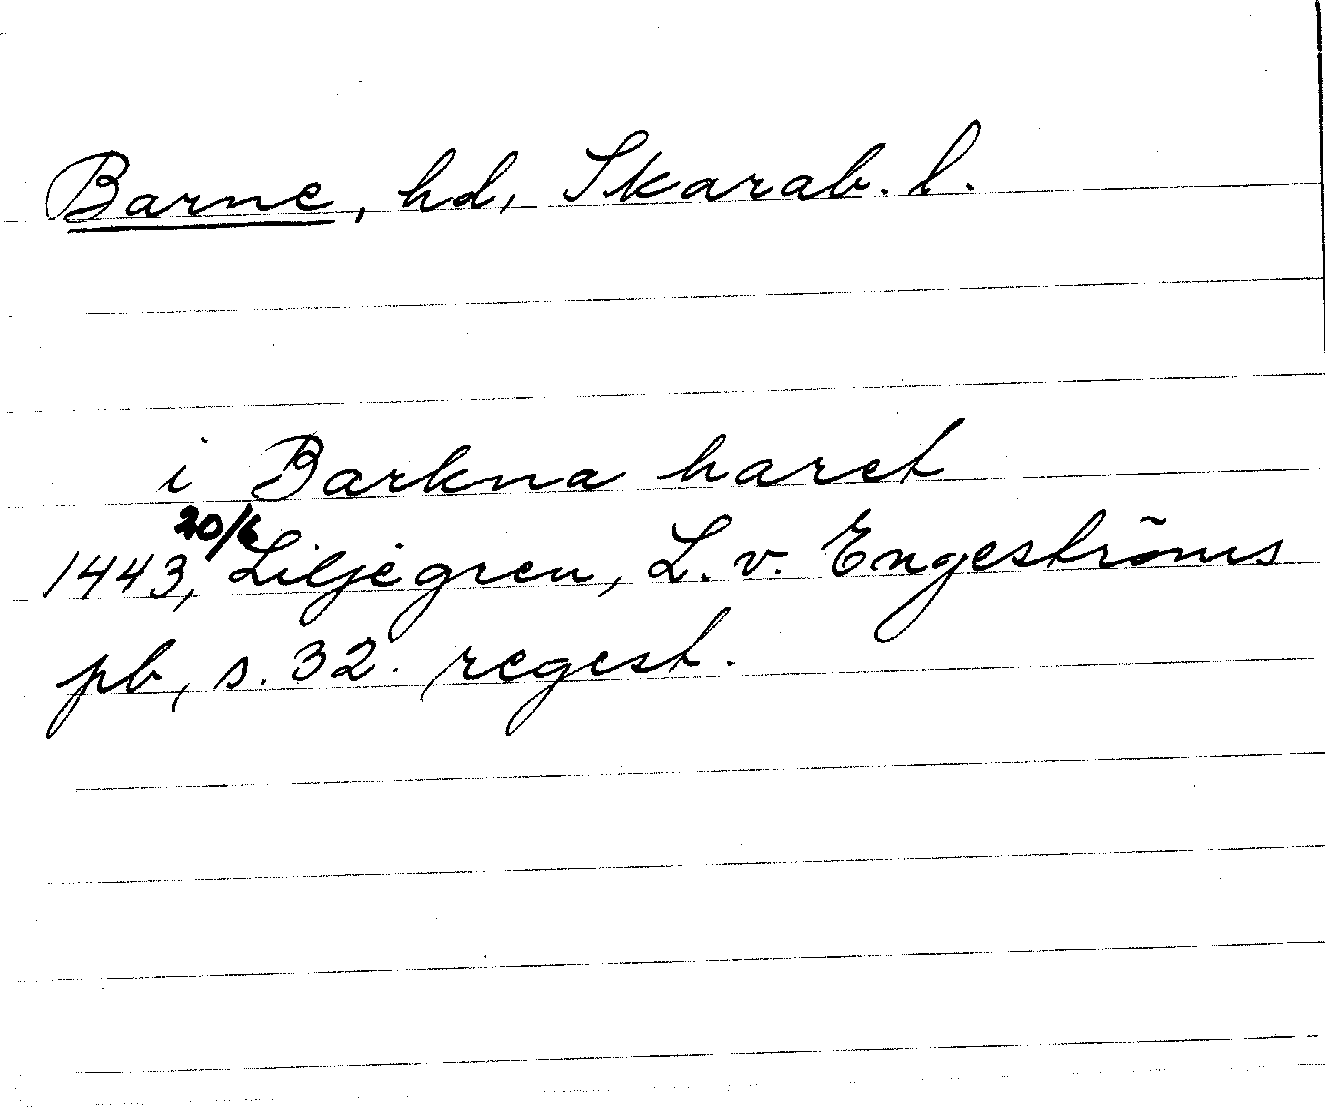 Barne, hd, Skarab. l.
i Barkna haret
20/6
1443, Liljegren, L. v. Engeströms
pb, s. 32. regest.